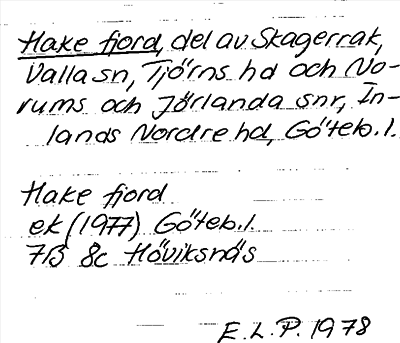 Hake fjord, del av Skagerrak,
Valla sn, Tjörns hd och No-
rums och Jörlanda snr, In-
lands Nordre hd, Göteb.l.
Hake fjord
ek (1977) Göteb.l.
7B 8c Höviksnäs
E.L.P. 1978